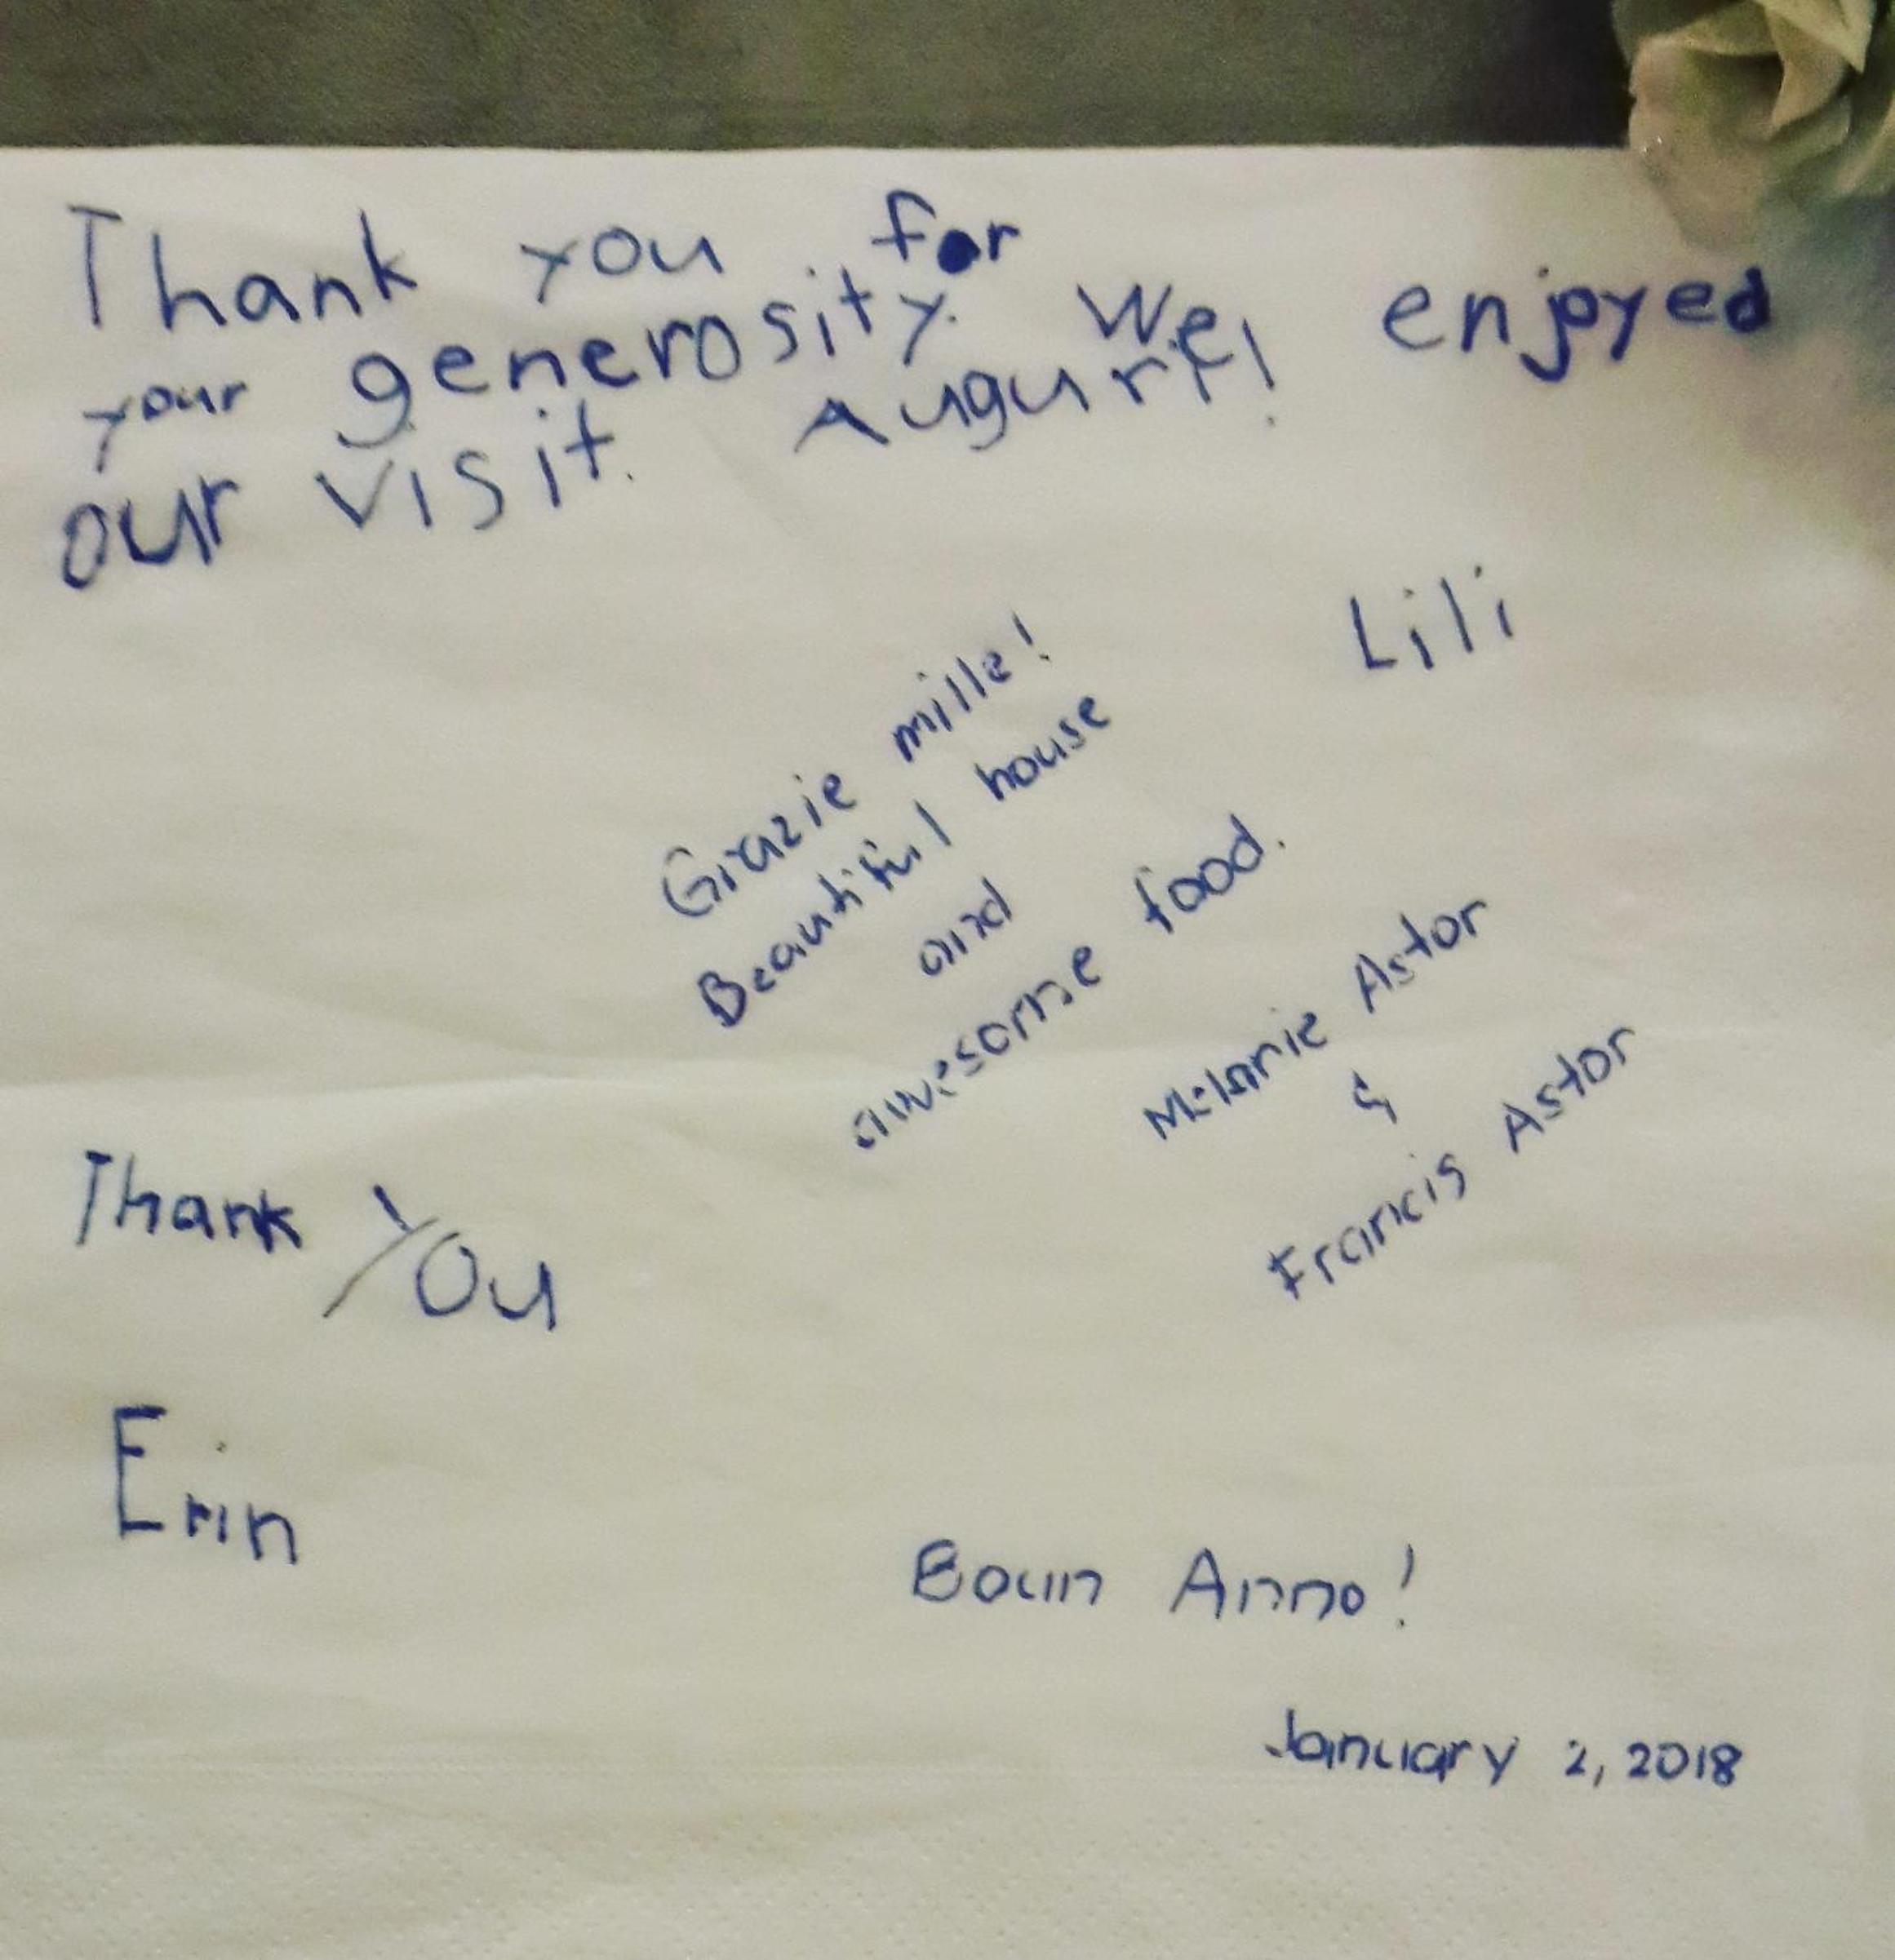 Thank you for
your generosity. We enjoyed
our visit. Auguri!
Lili
Grazie mille!
Beautiful house
and
awesome food.
Melanie Astor
&
Francis Astor
Thank You
Erin
Boun Anno!
January 2, 2018